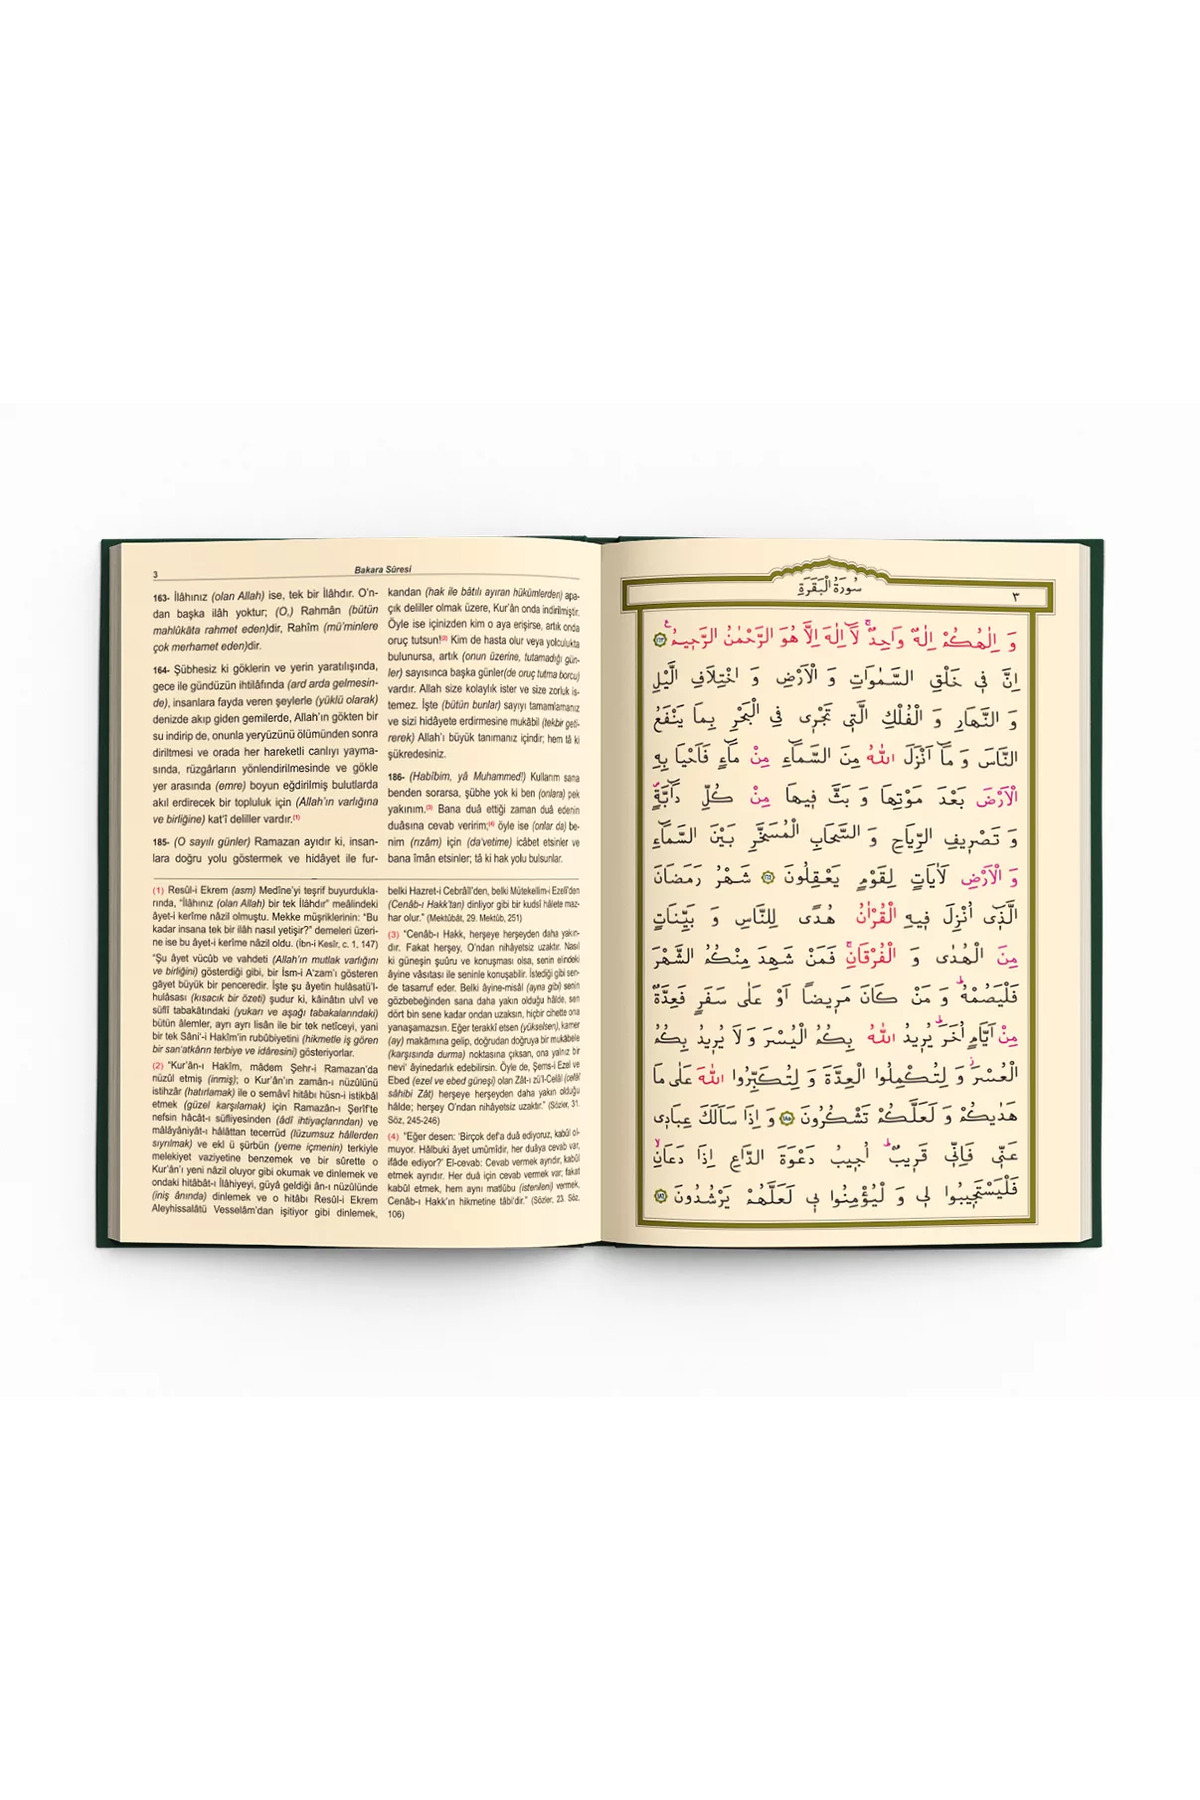 3
Bakara Sûresi
163- İlâhınız (olan Allah) ise, tek bir İlâhdır. O'n-
dan başka ilâh yoktur; (O,) Rahmân (bütün
mahlûkāta rahmet eden)dir, Rahîm (mü'minlere
çok merhamet eden)dir.
164- Şübhesiz ki göklerin ve yerin yaratılışında,
gece ile gündüzün ihtilâfında (ard arda gelmesin-
de), insanlara fayda veren şeylerle (yüklü olarak)
denizde akıp giden gemilerde, Allah'ın gökten bir
su indirip de, onunla yeryüzünü ölümünden sonra
diriltmesi ve orada her hareketli canlıyı yayma-
sında, rüzgârların yönlendirilmesinde ve gökle
yer arasında (emre) boyun eğdirilmiş bulutlarda
akıl erdirecek bir topluluk için (Allah'ın varlığına
ve birliğine) kat'î deliller vardır.(1)
185- (O sayılı günler) Ramazan ayıdır ki, insan-
lara doğru yolu göstermek ve hidâyet ile fur-
kandan (hak ile bâtılı ayıran hükümlerden) apa-
çık deliller olmak üzere, Kur'ân onda indirilmiştir.
Öyle ise içinizden kim o aya erişirse, artık onda
oruç tutsun!(2) Kim de hasta olur veya yolculukta
bulunursa, artık (onun üzerine, tutamadığı gün-
ler) sayısınca başka günler(de oruç tutma borcu)
vardır. Allah size kolaylık ister ve size zorluk is-
temez. İşte (bütün bunlar) sayıyı tamamlamanız
ve sizi hidâyete erdirmesine mukābil (tekbir geti-
rerek) Allah'ı büyük tanımanız içindir; hem tâ ki
şükredesiniz.
186- (Habîbim, yâ Muhammed!) Kullarım sana
benden sorarsa, şübhe yok ki ben (onlara) pek
yakınım.(3) Bana duâ ettiği zaman duâ edenin
duâsına cevab veririm;(4) öyle ise (onlar da) be-
nim (rızâm) için (da'vetime) icâbet etsinler ve
bana îmân etsinler; tâ ki hak yolu bulsunlar.
(1) Resûl-i Ekrem (asm) Medîne'yi teşrif buyurdukla-
rında, "İlâhınız (olan Allah) bir tek İlâhdır" meâlindeki
âyet-i kerîme nâzil olmuştu. Mekke müşriklerinin: "Bu
kadar insana tek bir ilâh nasıl yetişir?" demeleri üzeri-
ne ise bu âyet-i kerîme nâzil oldu. (İbn-i Kesîr, c. 1, 147)
"Şu âyet vücûb ve vahdeti (Allah'ın mutlak varlığını
ve birliğini) gösterdiği gibi, bir İsm-i A'zam'ı gösteren
gāyet büyük bir penceredir. İşte şu âyetin hulâsatü'l-
hulâsası (kısacık bir özeti) şudur ki, kâinâtın ulvî ve
süflî tabakātındaki (yukarı ve aşağı tabakalarındaki)
bütün âlemler, ayrı ayrı lisân ile bir tek netîceyi, yani
bir tek Sâni'-i Hakîm'in rubûbiyetini (hikmetle iş gören
bir san'atkârın terbiye ve idâresini) gösteriyorlar.
(2) "Kur'ân-ı Hakîm, mâdem Şehr-i Ramazan'da
nüzûl etmiş (inmiş); o Kur'ân'ın zamân-ı nüzûlünü
istihzâr (hatırlamak) ile o semâvî hitâbı hüsn-i istikbâl
etmek (güzel karşılamak) için Ramazân-ı Şerîf'te
nefsin hâcât-ı süfliyesinden (âdî ihtiyaçlarından) ve
mâlâyâniyât-ı hâlâttan tecerrüd (lüzumsuz hâllerden
sıyrılmak) ve ekl ü şürbün (yeme içmenin) terkiyle
melekiyet vaziyetine benzemek ve bir sûrette o
Kur'ân'ı yeni nâzil oluyor gibi okumak ve dinlemek ve
ondaki hitâbât-ı İlâhiyeyi, gûyâ geldiği ân-ı nüzûlünde
(iniş ânında) dinlemek ve o hitâbı Resûl-i Ekrem
Aleyhissalâtü Vesselâm'dan işitiyor gibi dinlemek,
belki Hazret-i Cebrâîl'den, belki Mütekellim-i Ezelî'den
(Cenâb-ı Hakk'tan) dinliyor gibi bir kudsî hâlete maz-
har olur." (Mektûbât, 29. Mektûb, 251)
(3) "Cenâb-ı Hakk, herşeye herşeyden daha yakın-
dır. Fakat herşey, O'ndan nihâyetsiz uzaktır. Nasıl
ki güneşin şuûru ve konuşması olsa, senin elindeki
âyine vâsıtası ile seninle konuşabilir. İstediği gibi sen-
de tasarruf eder. Belki âyine-misâl (ayna gibi) senin
gözbebeğinden sana daha yakın olduğu hâlde, sen
dört bin sene kadar ondan uzaksın, hiçbir cihette ona
yanaşamazsın. Eğer terakkî etsen (yükselsen), kamer
(ay) makāmına gelip, doğrudan doğruya bir mukābele
(karşısında durma) noktasına çıksan, ona yalnız bir
nevi' âyinedarlık edebilirsin. Öyle de, Şems-i Ezel ve
Ebed (ezel ve ebed güneşi) olan Zât-ı zü'l-Celâl (celâl
sâhibi Zât) herşeye herşeyden daha yakın olduğu
hâlde; herşey O'ndan nihâyetsiz uzaktır." (Sözler, 31.
Söz, 245-246)
(4) "Eğer desen: 'Birçok def'a duâ ediyoruz, kabûl ol-
muyor. Hâlbuki âyet umûmîdir, her duâya cevab var,
ifâde ediyor?' El-cevab: Cevab vermek ayrıdır, kabûl
etmek ayrıdır. Her duâ için cevab vermek var; fakat
kabûl etmek, hem aynı matlûbu (istenileni) vermek,
Cenâb-ı Hakk'ın hikmetine tâbi'dir." (Sözler, 23. Söz,
106)
سُورَةُ الْبَقَرَةِ
٣
وَ اِلٰهُكُمْ اِلٰهٌ وَاحِدٌۚ لَٓا اِلٰهَ اِلَّا هُوَ الرَّحْمٰنُ الرَّحٖيمُ ۟ ﴿١٦٣﴾
اِنَّ فٖي خَلْقِ السَّمٰوَاتِ وَ الْاَرْضِ وَ اخْتِلَافِ الَّيْلِ
وَ النَّهَارِ وَ الْفُلْكِ الَّتٖي تَجْرٖي فِي الْبَحْرِ بِمَا يَنْفَعُ
النَّاسَ وَ مَٓا اَنْزَلَ اللّٰهُ مِنَ السَّمَٓاءِ مِنْ مَٓاءٍ فَاَحْيَا بِهِ
الْاَرْضَ بَعْدَ مَوْتِهَا وَ بَثَّ فٖيهَا مِنْ كُلِّ دَٓابَّةٍ
وَ تَصْرٖيفِ الرِّيَاحِ وَ السَّحَابِ الْمُسَخَّرِ بَيْنَ السَّمَٓاءِ
وَ الْاَرْضِ لَاٰيَاتٍ لِقَوْمٍ يَعْقِلُونَ ﴿١٦٤﴾ شَهْرُ رَمَضَانَ
الَّذٖٓي اُنْزِلَ فٖيهِ الْقُرْاٰنُ هُدًى لِلنَّاسِ وَ بَيِّنَاتٍ
مِنَ الْهُدٰى وَ الْفُرْقَانِۚ فَمَنْ شَهِدَ مِنْكُمُ الشَّهْرَ
فَلْيَصُمْهُؕ وَ مَنْ كَانَ مَرٖيضًا اَوْ عَلٰى سَفَرٍ فَعِدَّةٌ
مِنْ اَيَّامٍ اُخَرَؕ يُرٖيدُ اللّٰهُ بِكُمُ الْيُسْرَ وَ لَا يُرٖيدُ بِكُمُ
الْعُسْرَؗ وَ لِتُكْمِلُوا الْعِدَّةَ وَ لِتُكَبِّرُوا اللّٰهَ عَلٰى مَا
هَدٰيكُمْ وَ لَعَلَّكُمْ تَشْكُرُونَ ﴿١٨٥﴾ وَ اِذَا سَاَلَكَ عِبَادٖي
عَنّٖي فَاِنّٖي قَرٖيبٌؕ اُجٖيبُ دَعْوَةَ الدَّاعِ اِذَا دَعَانِۙ
فَلْيَسْتَجٖيبُوا لٖي وَ لْيُؤْمِنُوا بٖي لَعَلَّهُمْ يَرْشُدُونَ ﴿١٨٦﴾